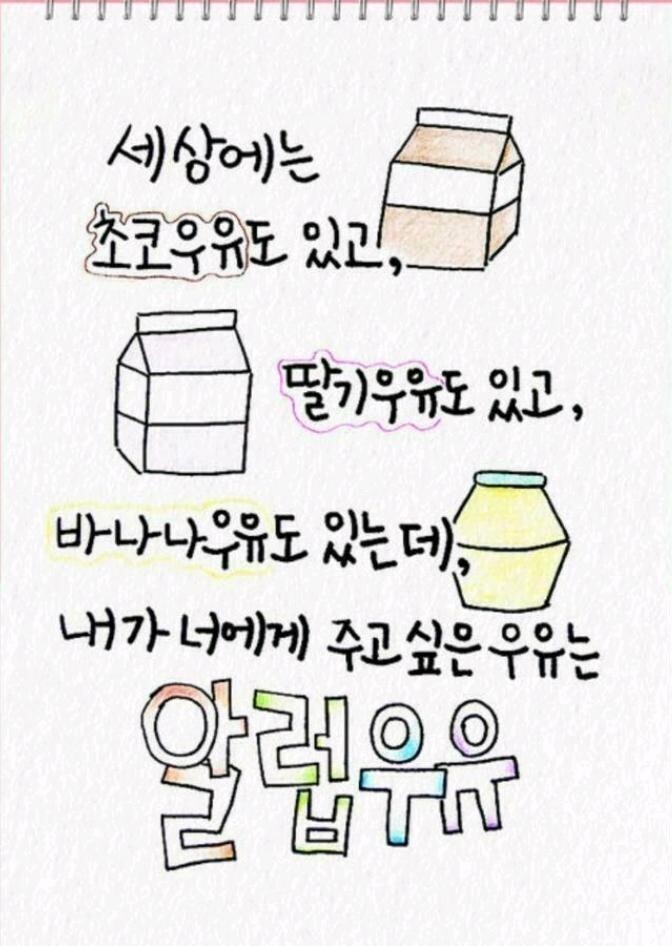 세상에는
초코우유도 있고,
딸기우유도 있고,
바나나우유도 있는데,
내가 너에게 주고싶은 우유는
알럽우유